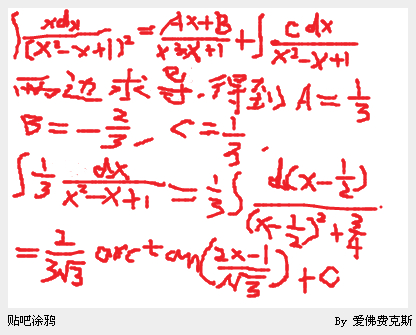 ∫ xdx/(x²-x+1)² = Ax+B/x²-x+1 + ∫ cdx/x²-x+1
两边求导.得到A=1/3
B=-2/3, C=1/3.
∫ 1/3 dx/x²-x+1 = 1/3 ∫ d(x-1/2)/(x-1/2)²+3/4
= 2/3√3 arctan(2x-1/√3)+C
贴吧涂鸦 By 爱佛费克斯